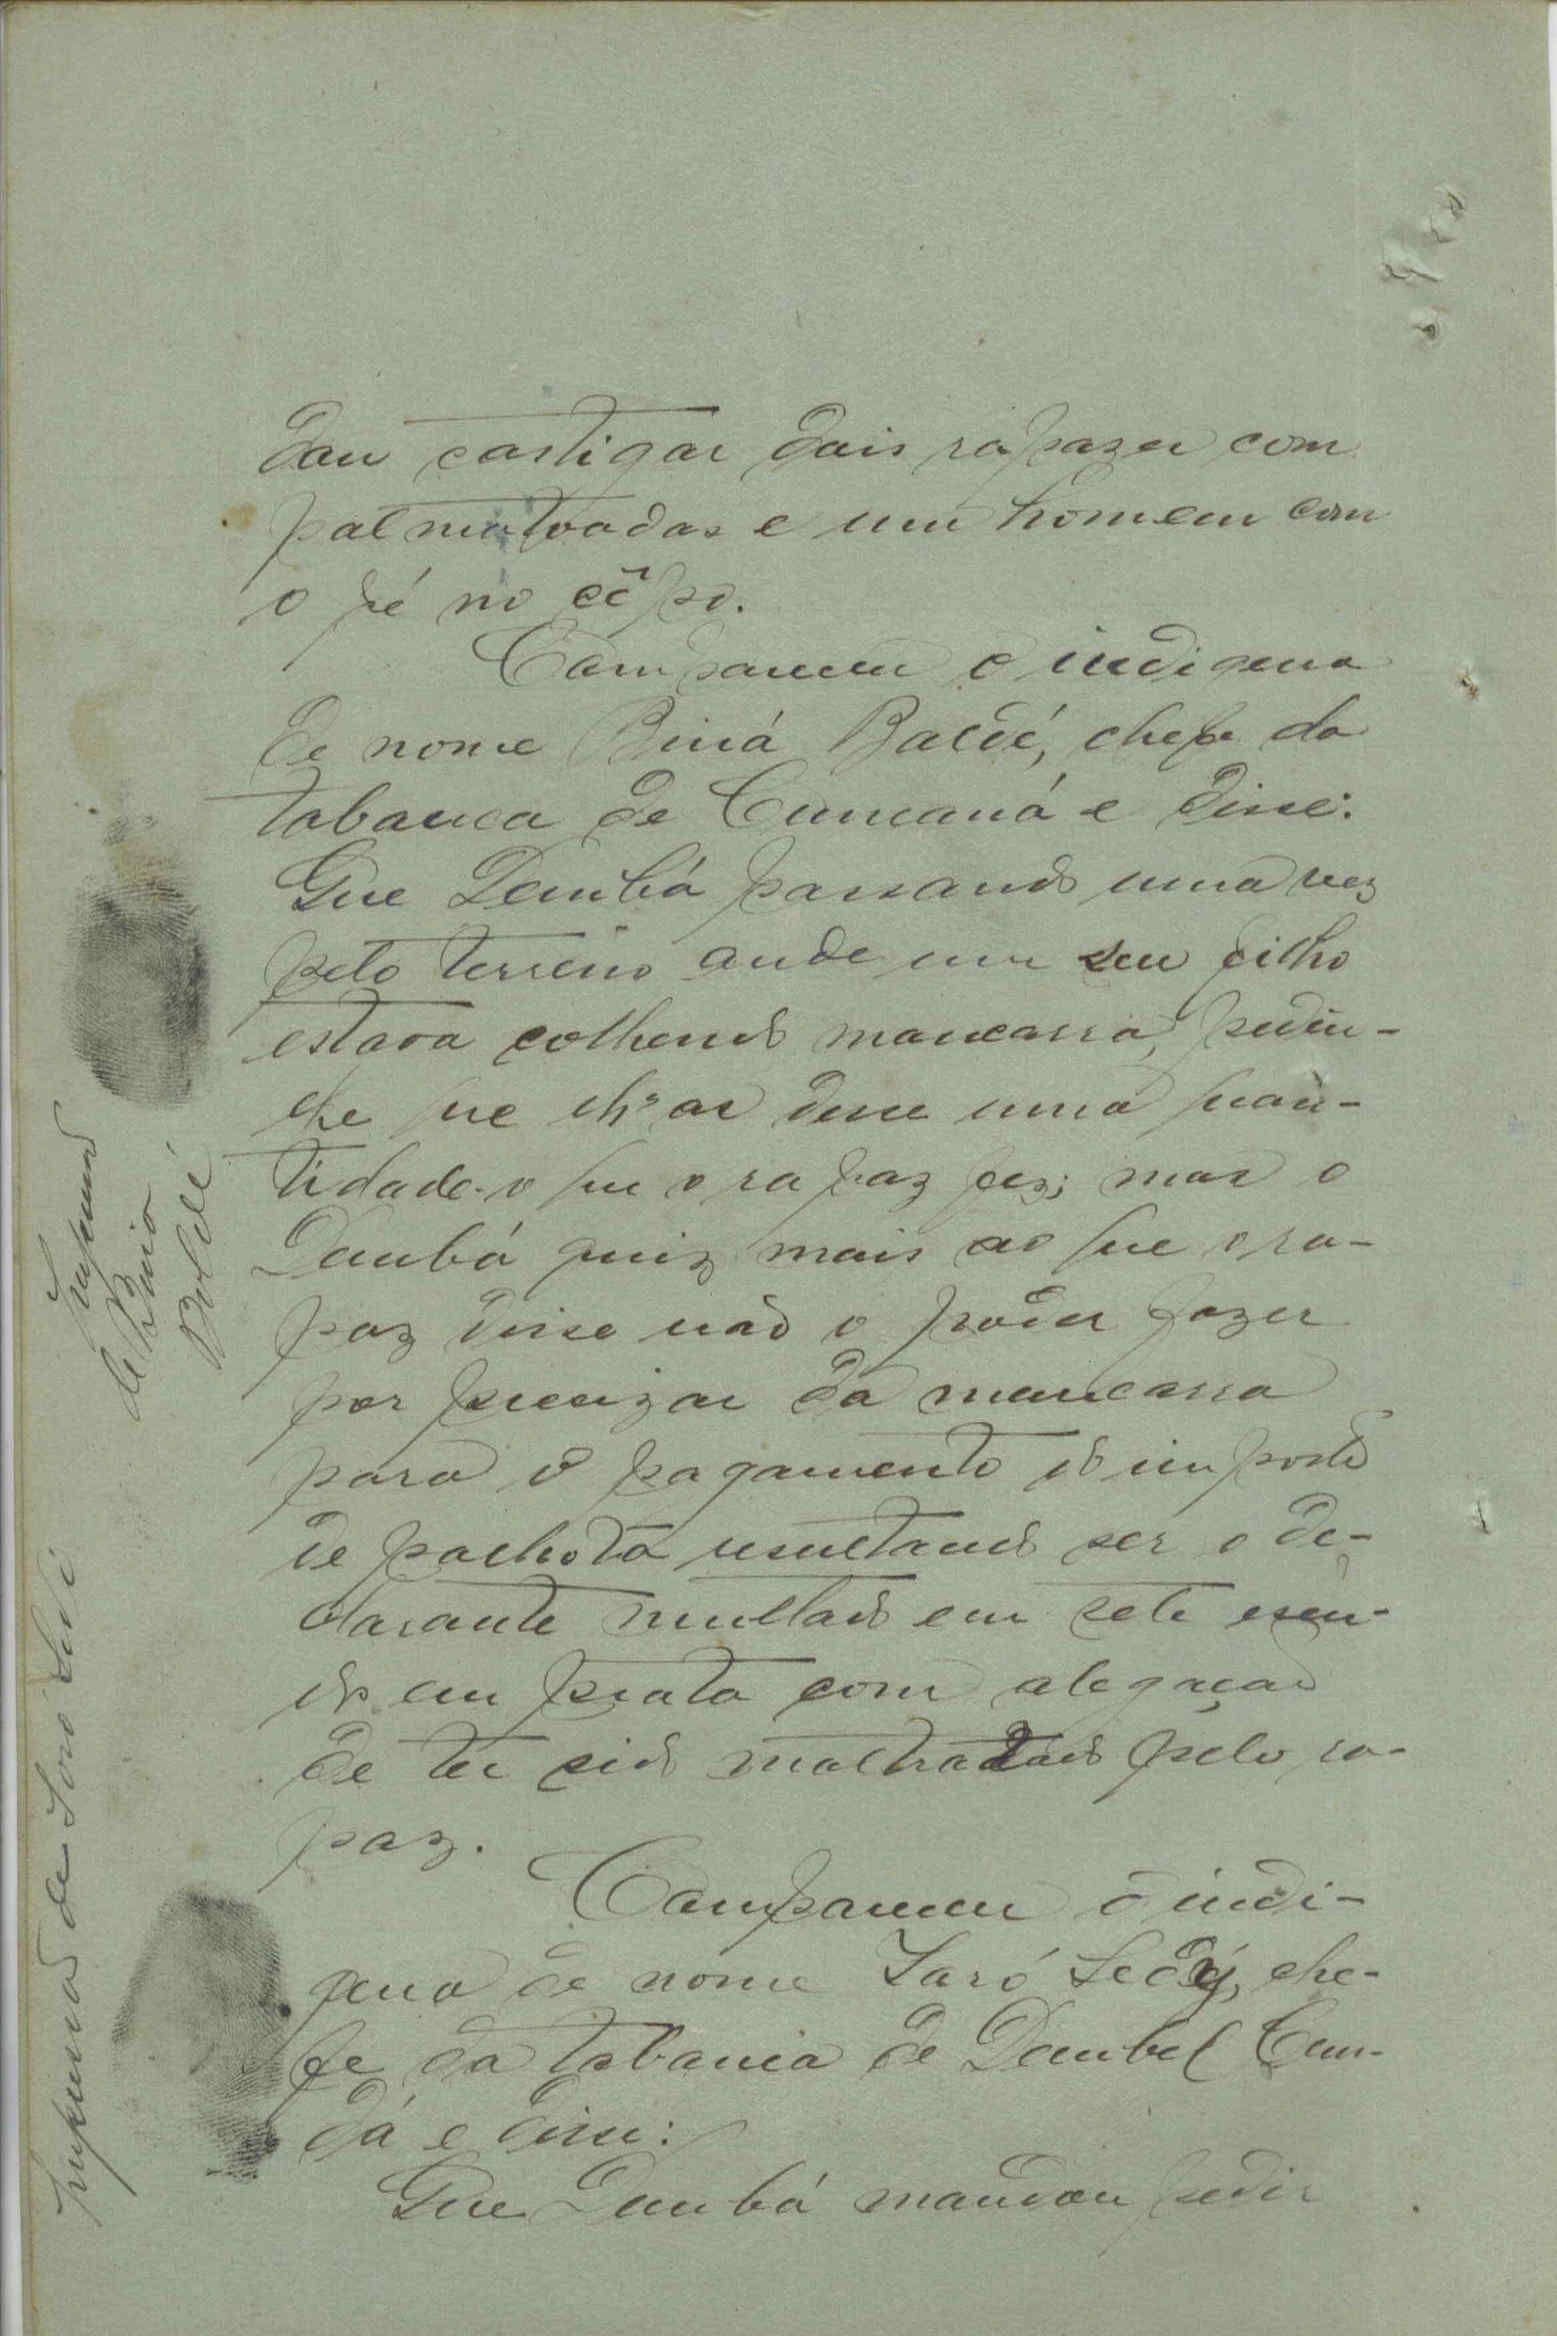 dou castigar dois rapazes com
palmatoadas e um homem com
o pé no cêpo.
Compareceu o indigena
de nome Biná Baldé, chefe da
tabanca de Cumcaná e disse:
Que Dembá passando uma vez
pelo terreno onde um seu filho
estava colhendo mancarra, pediu-
lhe que lh'as desse uma quan-
tidade o que o rapaz fez; mas o
Dembá quiz mais ao que o ra-
paz disse não o poder fazer
por precizar da mancarra
para o pagamento do imposto
de palhota resultando ser o de-
clarante multado em sete escu-
dos em prata com alegação
de ter sido maltratado pelo ra-
paz.
Compareceu o indi-
gena de nome Saró Sedý, che-
fe da tabanca de Dembel Cun-
dá e disse:
Que Dembá mandou pedir
Impressão
de Biná
Baldé
Impressão de Soró